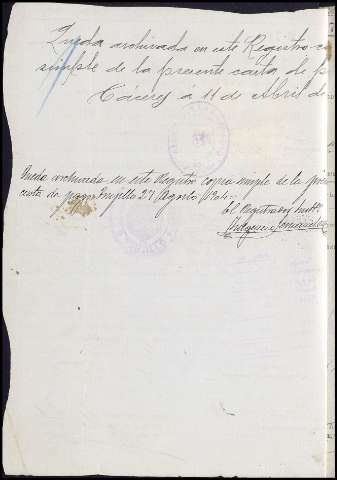 Queda archivada en este Registro co
simple de la presente carta de p
Cáceres á 11 de Abril de
Queda archivada en este Registro copia simple de la
carta de pago Trujillo 27 Agosto 1904
El Registrador